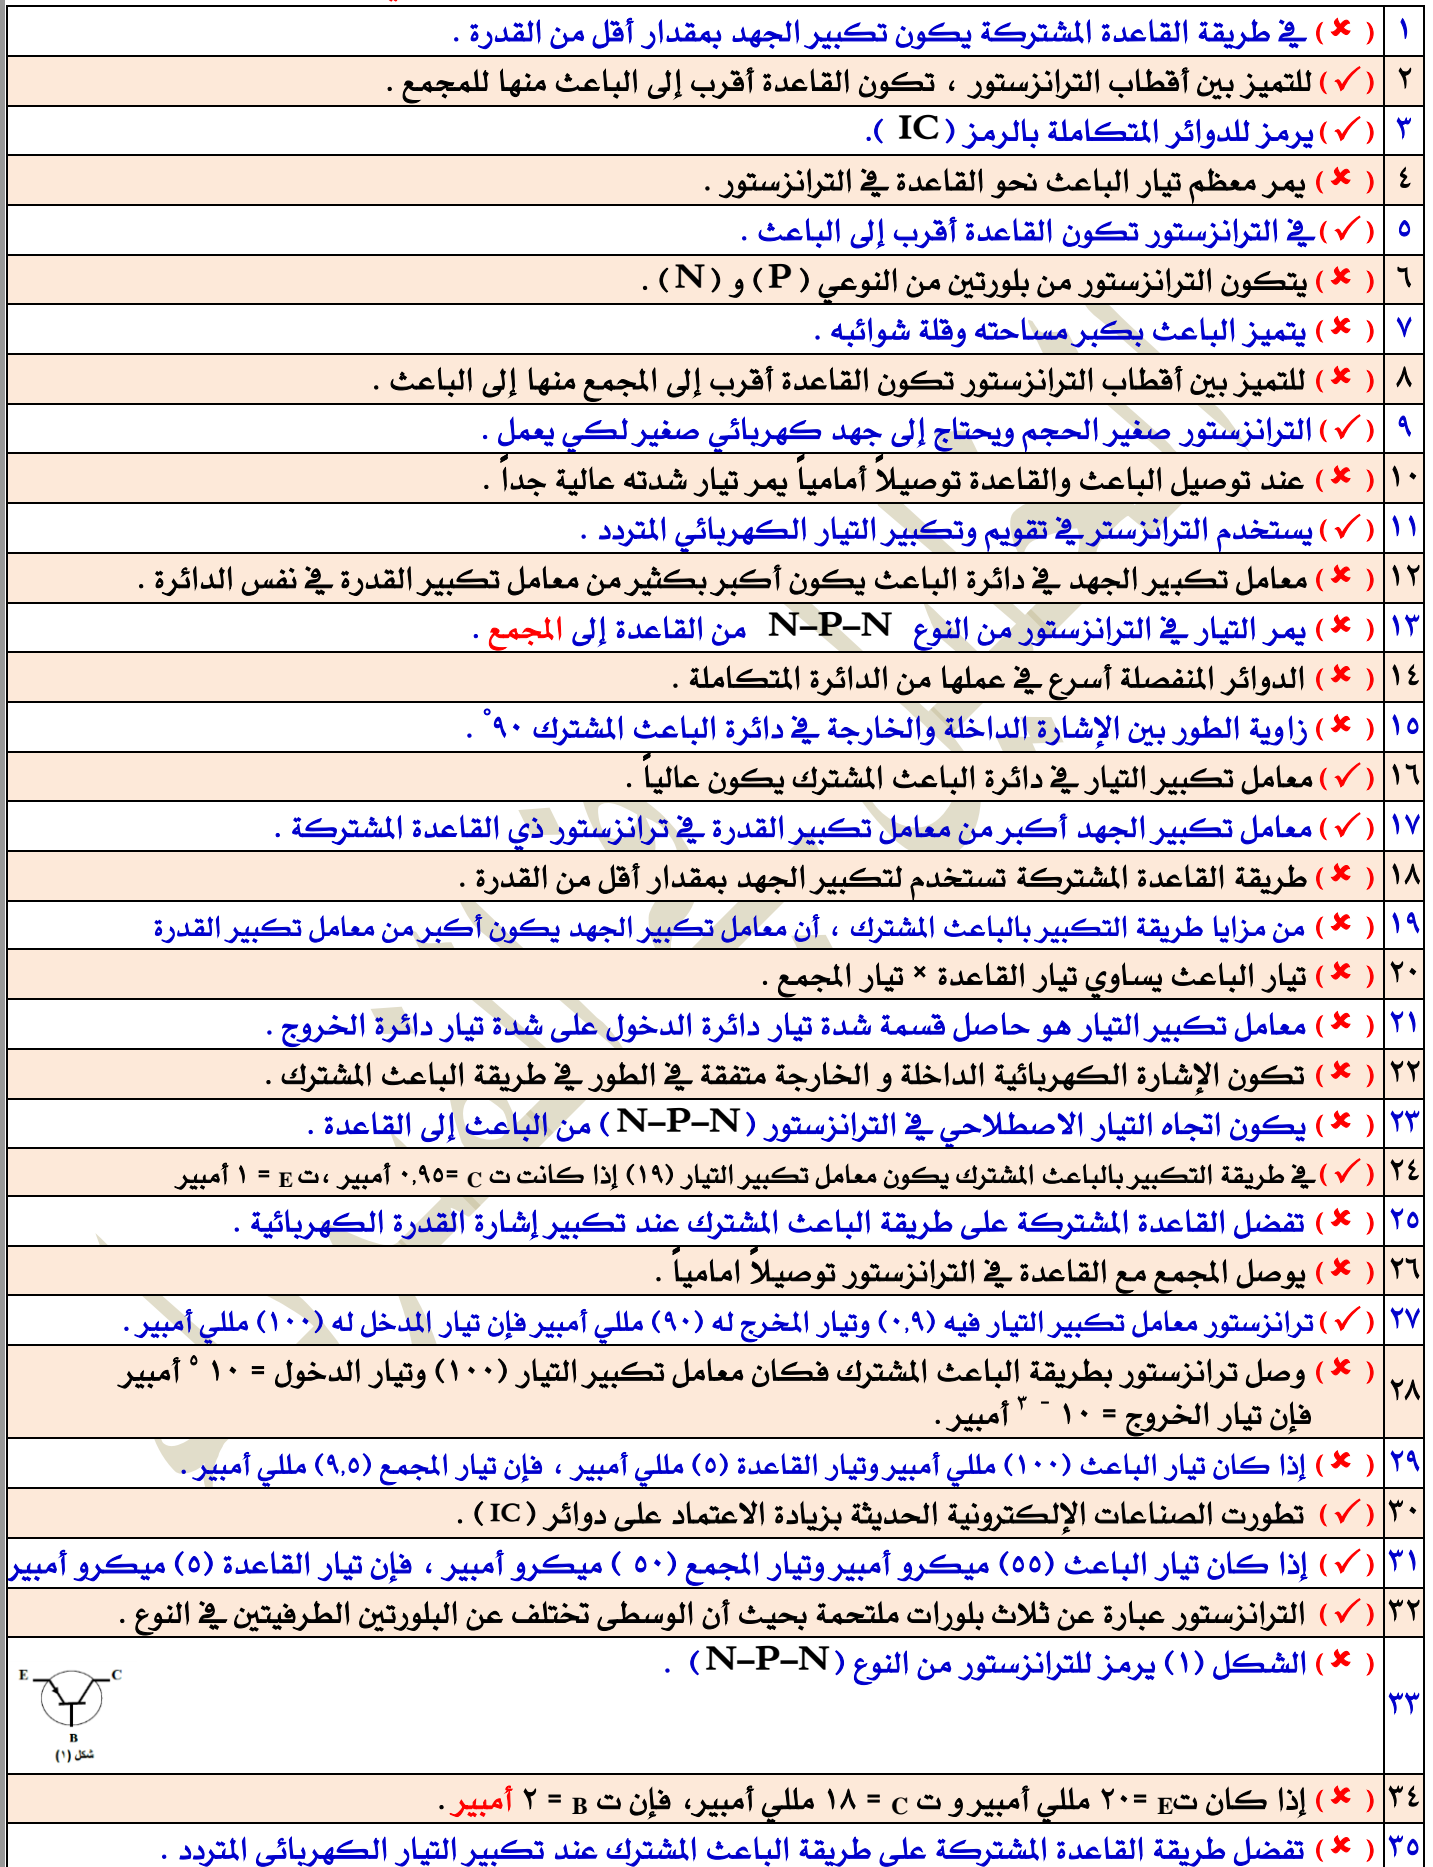 ١ ( ✘ ) في طريقة القاعدة المشتركة يكون تكبير الجهد بمقدار أقل من القدرة .
٢ ( ✓ ) للتميز بين أقطاب الترانزستور ، تكون القاعدة أقرب إلى الباعث منها للمجمع .
٣ ( ✓ ) يرمز للدوائر المتكاملة بالرمز ( IC ).
٤ ( ✘ ) يمر معظم تيار الباعث نحو القاعدة في الترانزستور .
٥ ( ✓ ) في الترانزستور تكون القاعدة أقرب إلى الباعث .
٦ ( ✘ ) يتكون الترانزستور من بلورتين من النوعي ( P ) و ( N ) .
٧ ( ✘ ) يتميز الباعث بكبر مساحته وقلة شوائبه .
٨ ( ✘ ) للتميز بين أقطاب الترانزستور تكون القاعدة أقرب إلى المجمع منها إلى الباعث .
٩ ( ✓ ) الترانزستور صغير الحجم ويحتاج إلى جهد كهربائي صغير لكي يعمل .
١٠ ( ✘ ) عند توصيل الباعث والقاعدة توصيلاً أمامياً يمر تيار شدته عالية جداً .
١١ ( ✓ ) يستخدم الترانزستر في تقويم وتكبير التيار الكهربائي المتردد .
١٢ ( ✘ ) معامل تكبير الجهد في دائرة الباعث يكون أكبر بكثير من معامل تكبير القدرة في نفس الدائرة .
١٣ ( ✘ ) يمر التيار في الترانزستور من النوع N–P–N من القاعدة إلى المجمع .
١٤ ( ✘ ) الدوائر المنفصلة أسرع في عملها من الدائرة المتكاملة .
١٥ ( ✘ ) زاوية الطور بين الإشارة الداخلة والخارجة في دائرة الباعث المشترك ٩٠° .
١٦ ( ✓ ) معامل تكبير التيار في دائرة الباعث المشترك يكون عالياً .
١٧ ( ✓ ) معامل تكبير الجهد أكبر من معامل تكبير القدرة في ترانزستور ذي القاعدة المشتركة .
١٨ ( ✘ ) طريقة القاعدة المشتركة تستخدم لتكبير الجهد بمقدار أقل من القدرة .
١٩ ( ✘ ) من مزايا طريقة التكبير بالباعث المشترك ، أن معامل تكبير الجهد يكون أكبر من معامل تكبير القدرة
٢٠ ( ✘ ) تيار الباعث يساوي تيار القاعدة × تيار المجمع .
٢١ ( ✘ ) معامل تكبير التيار هو حاصل قسمة شدة تيار دائرة الدخول على شدة تيار دائرة الخروج .
٢٢ ( ✘ ) تكون الإشارة الكهربائية الداخلة و الخارجة متفقة في الطور في طريقة الباعث المشترك .
٢٣ ( ✘ ) يكون اتجاه التيار الاصطلاحي في الترانزستور ( N–P–N ) من الباعث إلى القاعدة .
٢٤ ( ✓ ) في طريقة التكبير بالباعث المشترك يكون معامل تكبير التيار (١٩) إذا كانت ت C =٠,٩٥ أمبير ،ت E = ١ أمبير
٢٥ ( ✘ ) تفضل القاعدة المشتركة على طريقة الباعث المشترك عند تكبير إشارة القدرة الكهربائية .
٢٦ ( ✘ ) يوصل المجمع مع القاعدة في الترانزستور توصيلاً امامياً .
٢٧ ( ✓ ) ترانزستور معامل تكبير التيار فيه (٠,٩) وتيار المخرج له (٩٠) مللي أمبير فإن تيار المدخل له (١٠٠) مللي أمبير .
٢٨ ( ✘ ) وصل ترانزستور بطريقة الباعث المشترك فكان معامل تكبير التيار (١٠٠) وتيار الدخول = ١٠ ⁵ أمبير
فإن تيار الخروج = ١٠ ⁻ ³ أمبير .
٢٩ ( ✘ ) إذا كان تيار الباعث (١٠٠) مللي أمبير وتيار القاعدة (٥) مللي أمبير ، فإن تيار المجمع (٩,٥) مللي أمبير .
٣٠ ( ✓ ) تطورت الصناعات الإلكترونية الحديثة بزيادة الاعتماد على دوائر ( IC ) .
٣١ ( ✓ ) إذا كان تيار الباعث (٥٥) ميكرو أمبير وتيار المجمع (٥٠ ) ميكرو أمبير ، فإن تيار القاعدة (٥) ميكرو أمبير
٣٢ ( ✓ ) الترانزستور عبارة عن ثلاث بلورات ملتحمة بحيث أن الوسطى تختلف عن البلورتين الطرفيتين في النوع .
٣٣ ( ✘ ) الشكل (١) يرمز للترانزستور من النوع ( N–P–N ) .
E C
B
شكل (١)
٣٤ ( ✘ ) إذا كان تE =٢٠ مللي أمبير و ت C = ١٨ مللي أمبير، فإن ت B = ٢ أمبير .
٣٥ ( ✘ ) تفضل طريقة القاعدة المشتركة على طريقة الباعث المشترك عند تكبير التيار الكهربائي المتردد .